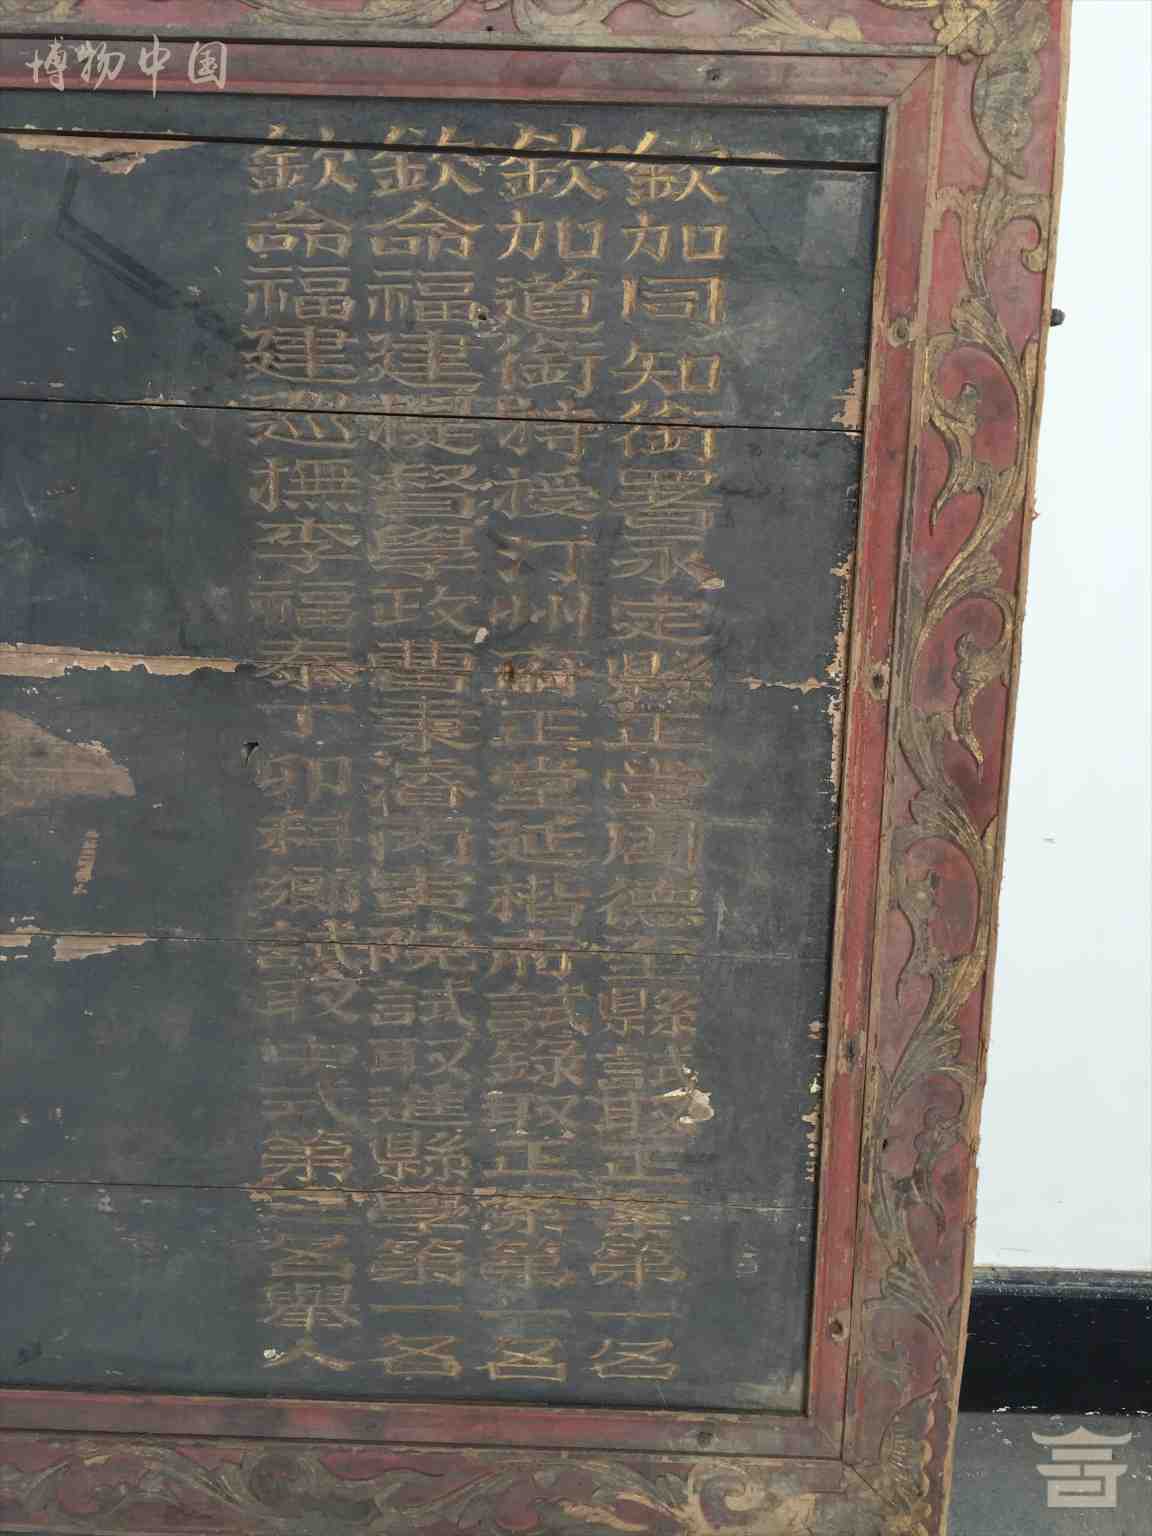 欽加同知銜署永定縣正堂周德至縣試取正案第一名
欽加道銜特授汀州府正堂延楷府試錄取正案第一名
欽命福建提督學政曹秉濬歲院試取進縣學第一名
欽命福建巡撫李福泰丁卯科鄉試取中式第三名舉人
博物中国